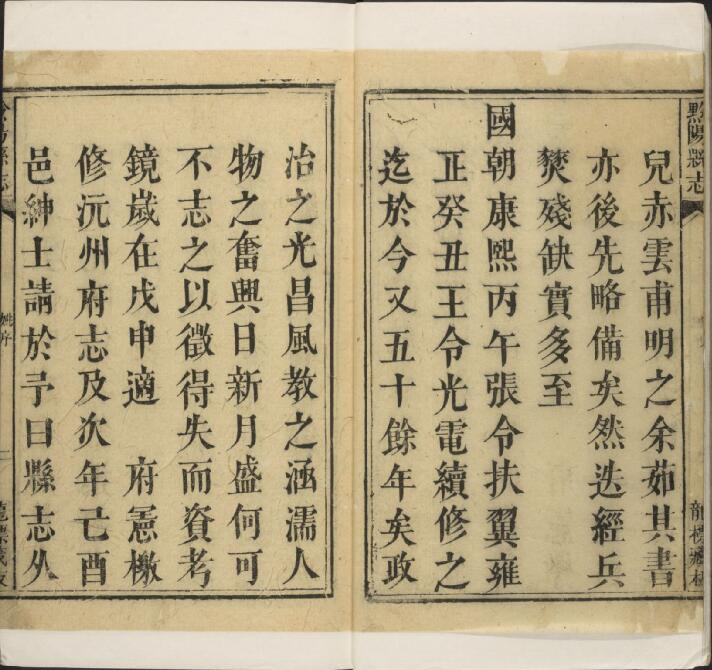 黔陽縣志
龍標藏板
兒赤雲甫明之余茹其書
亦後先略備矣然迭經兵
燹殘缺實多至
國朝康熙丙午張令扶翼雍
正癸丑王令光電續修之
迄於今又五十餘年矣政
治之光昌風教之涵濡人
物之奮興日新月盛何可
不志之以徵得失而資考
鏡歲在戊申適　府憲檄
修沅州府志及次年己酉
邑紳士請於予曰縣志久
姚序